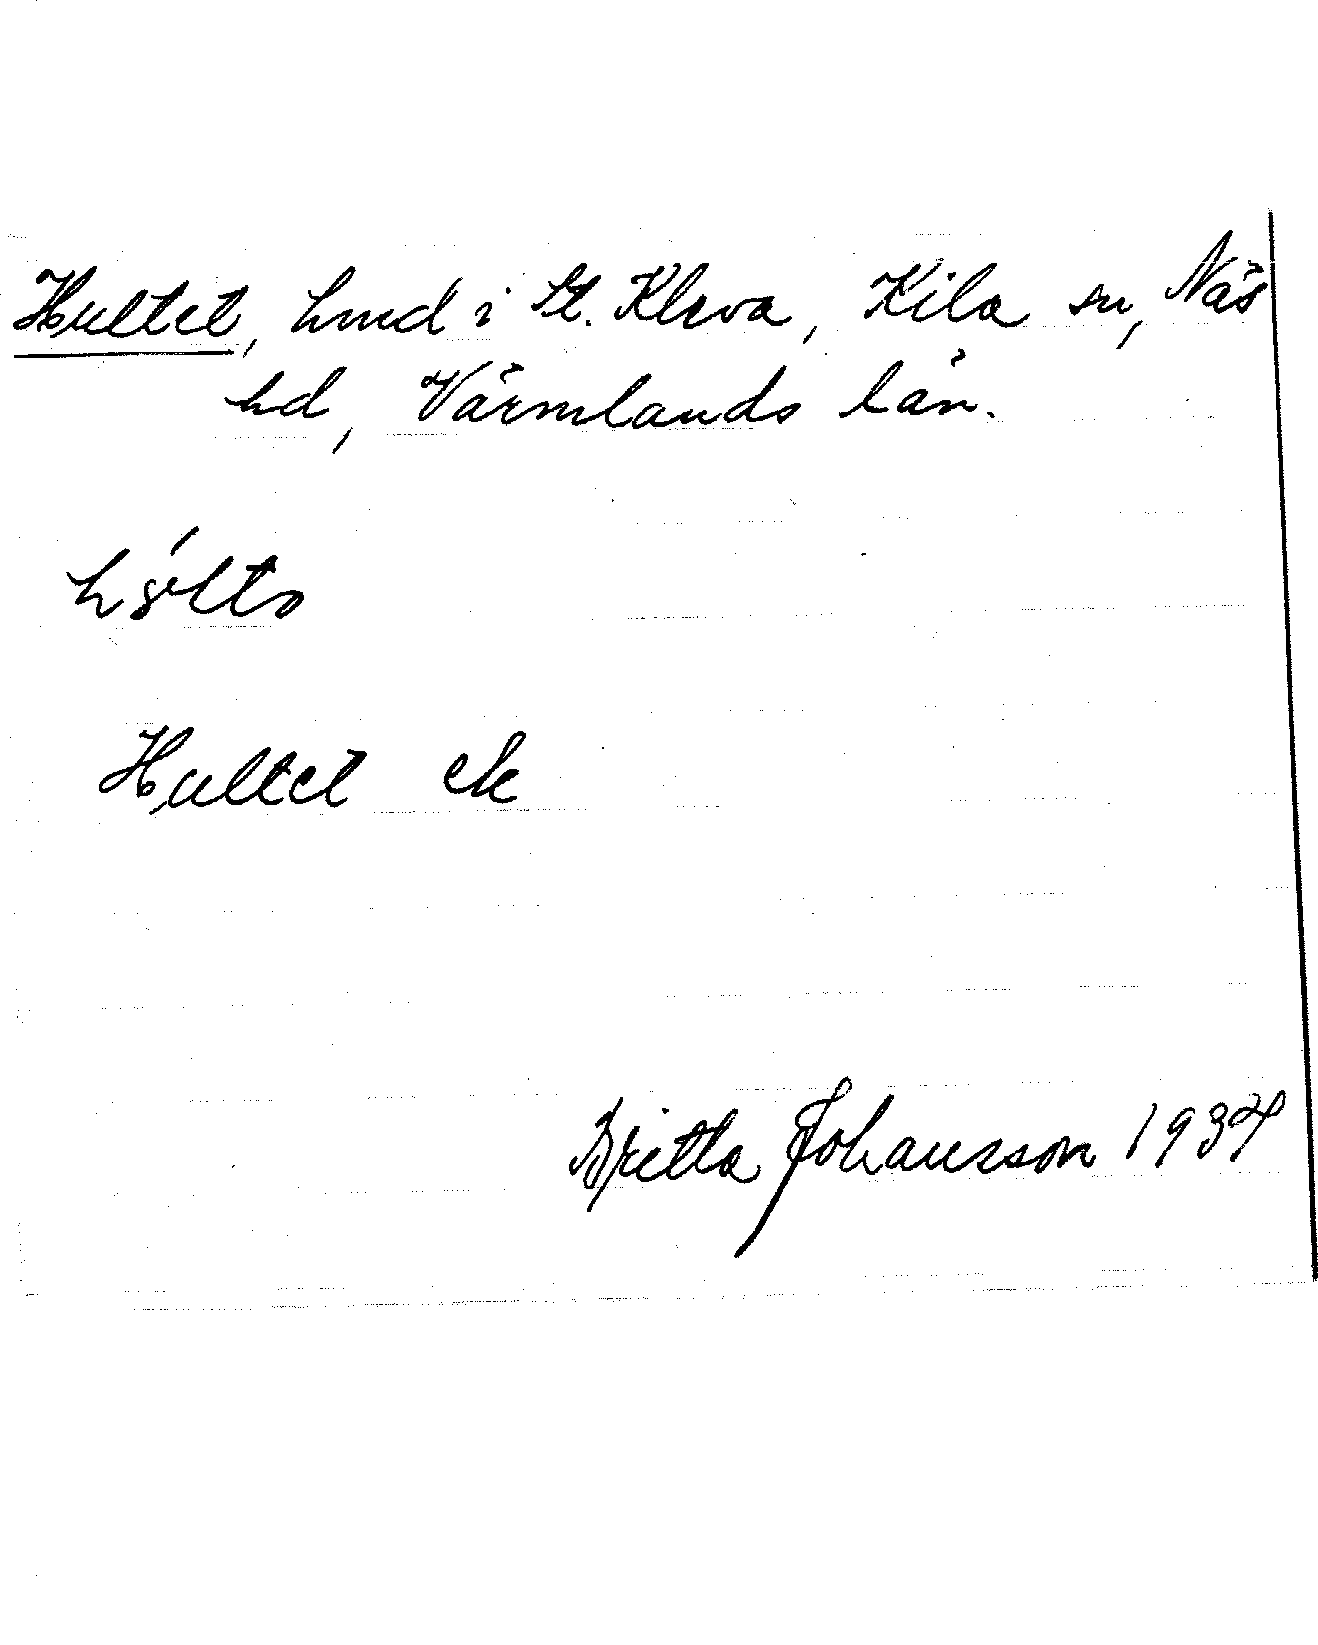 Hultet, hmd i St. Kleva, Kila sn, Näs
hd, Värmlands län.
Hultet ek
Britta Johansson 1934